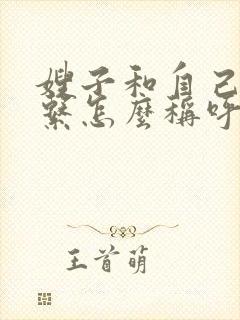 嫂子和自己
繫怎麼稱呼
王首萌